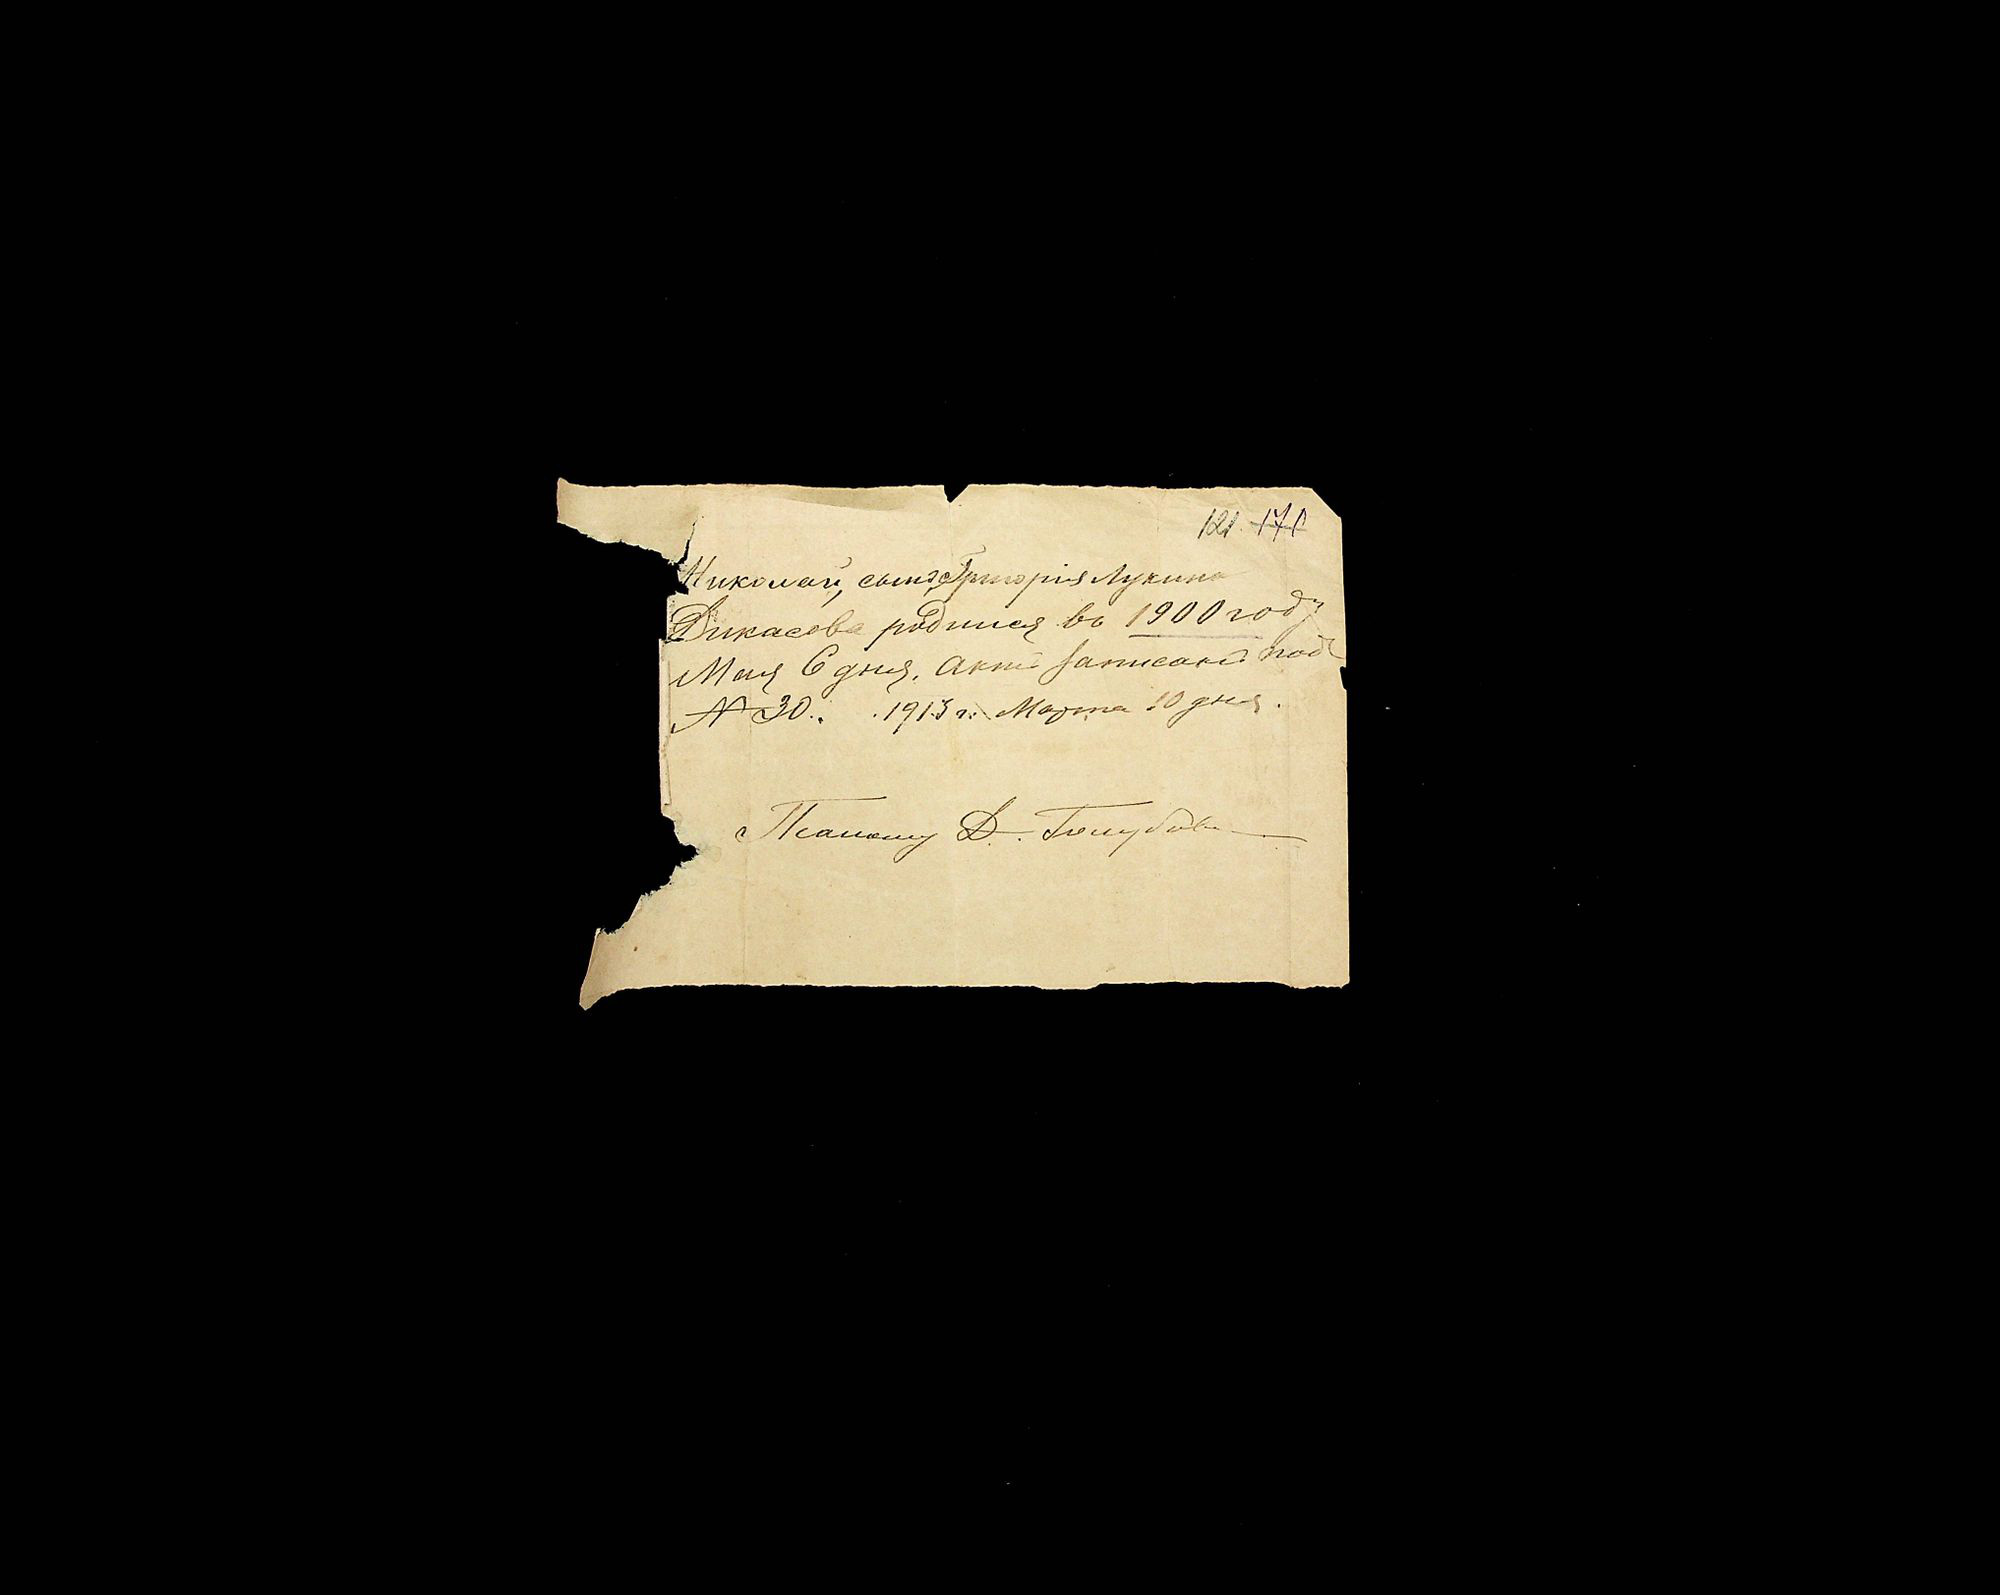 121 171
Николай, сынъ Григорія Лукина
Дикасова родился въ 1900 году
Мая 6 дня. Актъ записанъ подъ
№ 30. 1913 г. Марта 10 дня.
Псаломщ Д. Голубовъ